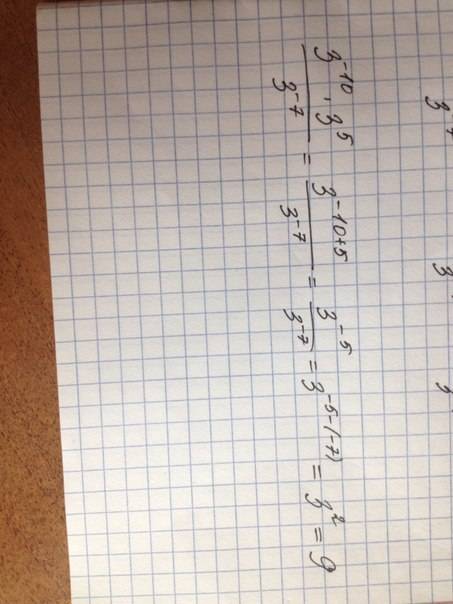 \frac{3^{-10} \cdot 3^{5}}{3^{-7}} = \frac{3^{-10+5}}{3^{-7}} = \frac{3^{-5}}{3^{-7}} = 3^{-5-(-7)} = 3^{2} = 9